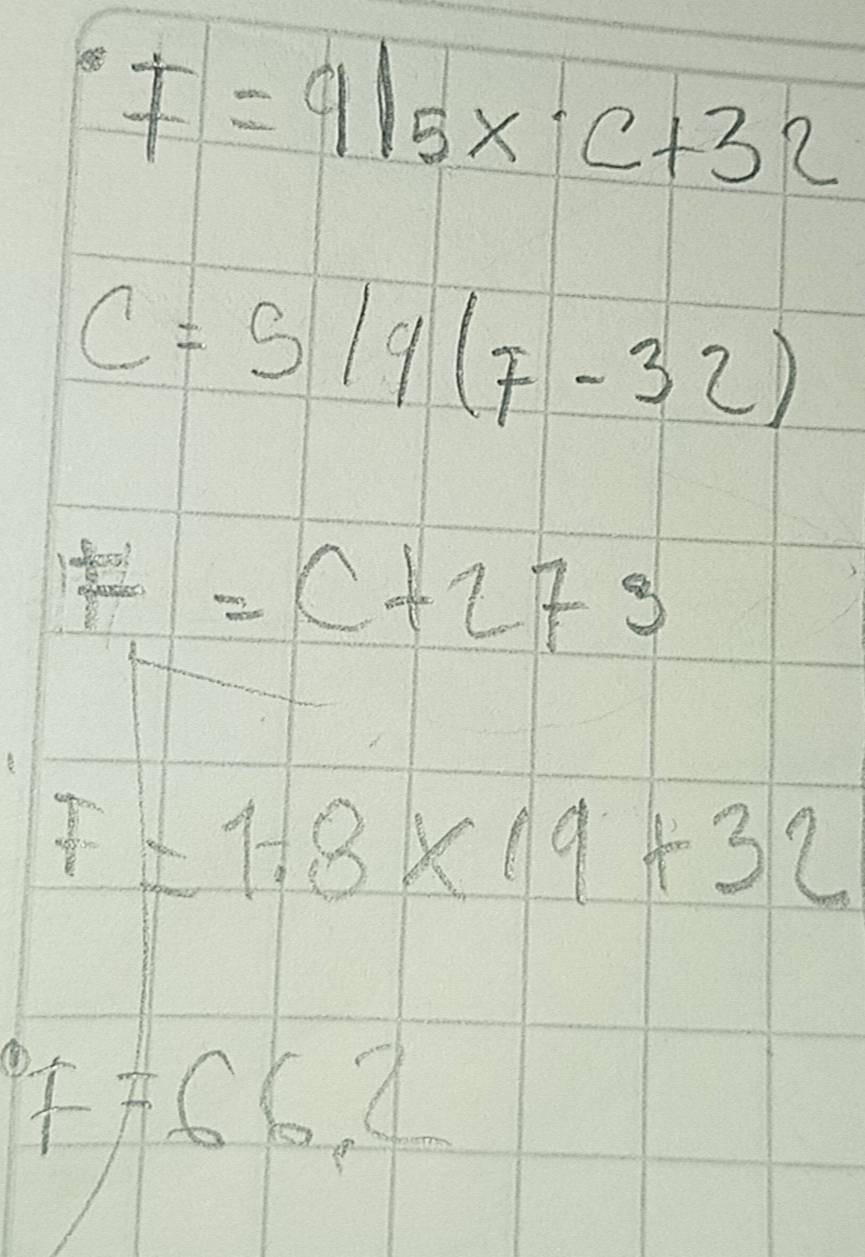 °F = 9/5 x °C + 32
C = 5/9 (F - 32)
= C + 273
F = 1.8 x 19 + 32
°F = 66,2